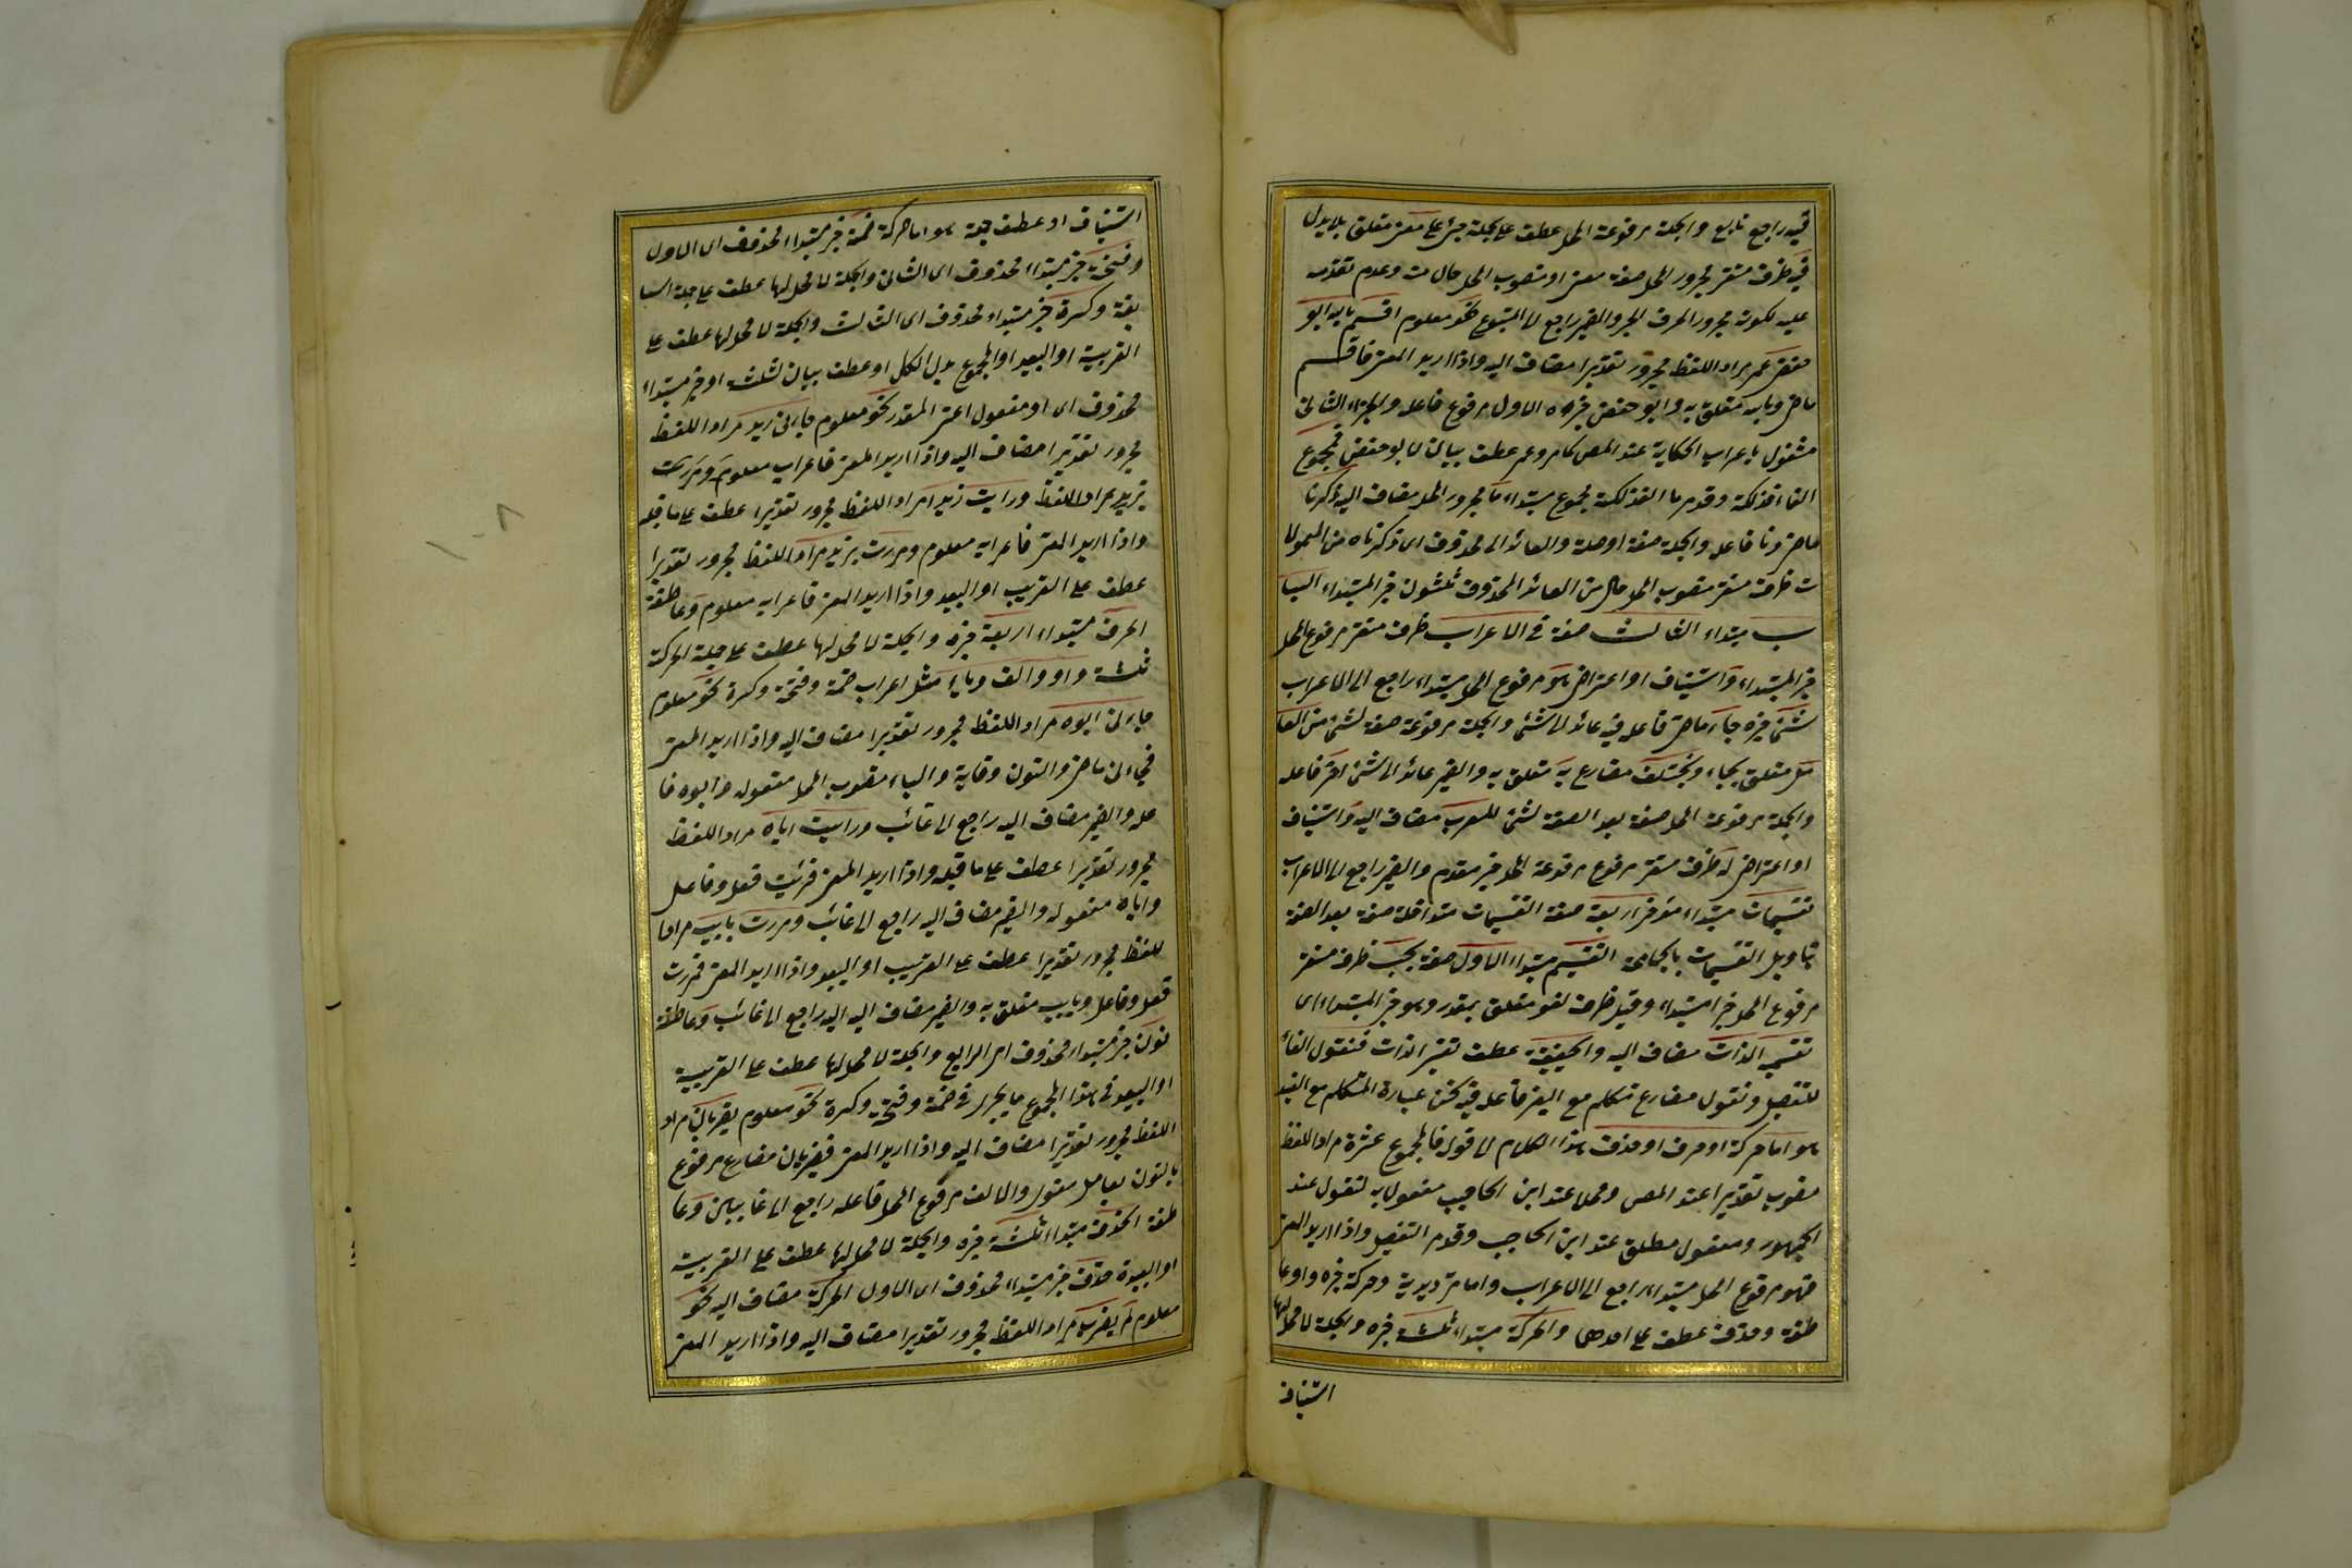 فيه راجع تابع والجملة مرفوعة المحل عطف على جملة جئ على معنى متعلق بلا يدل
فيه ظرف مستقر مجرور المحل صفة معنى او منصوب المحل حال منه وعدم تقدمه
عليه لكونه مجرورا بحرف الجر والضمير راجع الى المتبوع نحو معلوم اقسم بالله ابو
حفص عمر مراد اللفظ مجرور تقديرا مضاف اليه واذا اريد المعنى فاقسم
ماض وبالله متعلق به وابو حفص جزءه الاول مرفوع فاعله والجزء الثانى
مشغول باعراب الحكاية عند المص كامر وعمر عطف بيان لابو حفص فمجموع
الفاء فذلكة مجموع مبتداء ما مجرور المحل مضاف اليه ذكرنا
ماض ونا فاعله والجملة صفة او صلة والعائد الى محذوف اى ذكرناه من المعمولا
ت ظرف مستقر منصوب المحل حال من العائد المحذوف ثلثون خبر المبتداء البا
ب مبتداء الثالث صفة فى الاعراب ظرف مستقر مرفوع المحل
خبر المبتداء واستيناف او اعتراض هو مرفوع المحل مبتداء راجع الى الاعراب
شئ خبره جاء ماض فاعله فيه عائد الى شئ والجملة مرفوعة صفة لشئ من العا
مل متعلق بجاء ويختلف مضارع به متعلق به والضمير عائد الى شئ آخر فاعله
والجملة مرفوعة المحل صفة بعد الصفة لشئ للمعرب مضاف اليه واستيناف
او اعتراض له ظرف مستقر مرفوع مرفوعة المحل خبر مقدم والضمير راجع الى الاعراب
تقسيمات مبتداء مؤخر اربعة صفة التقسيمات متداخلة صفة بعد الصفة
بتاويل التقسيمات بالجماعة التقسيم مبتداء الاول صفة بحسب ظرف مستقر
مرفوع المحل خبر المبتداء وقيل ظرف لغو متعلق بمقدر وهو خبر المبتداء اى
تقسيم الذات مضاف اليه والحقيقة عطف تفسير الذات فنقول الفاء
للتفصيل ونقول مضارع متكلم مع الغير فاعله فيه نحن عبارة المتكلم مع الغير
هو اما حركة او حرف او حذف هذا الكلام الى قوله فالمجموع عشرة مراد اللفظ
منصوب تقديرا عند المص ومحلا عند ابن الحاجب مفعول به لنقول عند
الجمهور ومفعول مطلق عند ابن الحاجب وقدم التفصيل واذا اريد المعنى
فهو مرفوع المحل مبتداء راجع الى الاعراب واما ترديدية وحركة خبره واو عا
طفة وحذف عطف على احدهما والحركة مبتداء ثلثة خبره والجملة لا محل لها
استيناف
استيناف او عطف جملة هو اما حركة ضمة خبر مبتداء محذوف اى الاول
وفتحة خبر مبتداء محذوف اى الثانى والجملة لا محل لها عطف على جملة السا
بقة وكسرة خبر مبتداء محذوف اى الثالث والجملة لا محل لها عطف على
القريبة او البعيد او المجموع بدل الكل او عطف بيان لثلثة او خبر مبتداء
محذوف اى او مفعول اعنى المقدر نحو معلوم جاءنى زيد مراد اللفظ
مجرور تقديرا مضاف اليه واذا اريد المعنى فاعرابه معلوم ومررت
بزيد مراد اللفظ ورايت زيدا مراد اللفظ مجرور تقديرا عطف على ما قبله
واذا اريد المعنى فاعرابه معلوم ومررت بزيد مراد اللفظ مجرور تقديرا
عطف على القريب او البعيد واذا اريد المعنى فاعرابه معلوم وعاطفة
الحرف مبتداء اربعة خبره والجملة لا محل لها عطف على جملة الحركة
ثلثة واو والف وياء مثل اعراب ضمة وفتحة وكسرة نحو معلوم
جاءنى ابوه مراد اللفظ مجرور تقديرا مضاف اليه واذا اريد المعنى
فجاءنى ماض والنون وقاية والياء منصوب المحل مفعوله وابوه فا
عله والضمير مضاف اليه راجع الى غائب ورايت اباه مراد اللفظ
مجرور تقديرا عطف على ما قبله واذا اريد المعنى فرئيت فعل وفاعل
واباه مفعوله والضمير مضاف اليه راجع الى غائب ومررت بابيه مراد ا
للفظ مجرور تقديرا عطف على القريب او البعيد واذا اريد المعنى فمررت
فعل وفاعل وبابيه متعلق به والضمير مضاف اليه اليه راجع الى غائب وعاطفة
نون خبر مبتداء محذوف اى الرابع والجملة لا محل لها عطف على القريبة
او البعيد فى هذا المجموع ما يجرى فى ضمة وفتحة وكسرة نحو معلوم يضربان مراد
اللفظ مجرور تقديرا مضاف اليه واذا اريد المعنى فيضربان مضارع مرفوع
بالنون بعامل معنوى والالف مرفوع المحل فاعله راجع الى غائبين وعا
طفة الحذف مبتداء ثلثة خبره والجملة لا محل لها عطف على القريبة
او البعيدة حذف خبر مبتداء محذوف اى الاول الحركة مضاف اليه نحو
معلوم لم يضرب مراد اللفظ مجرور تقديرا مضاف اليه واذا اريد المعنى
١٠٨